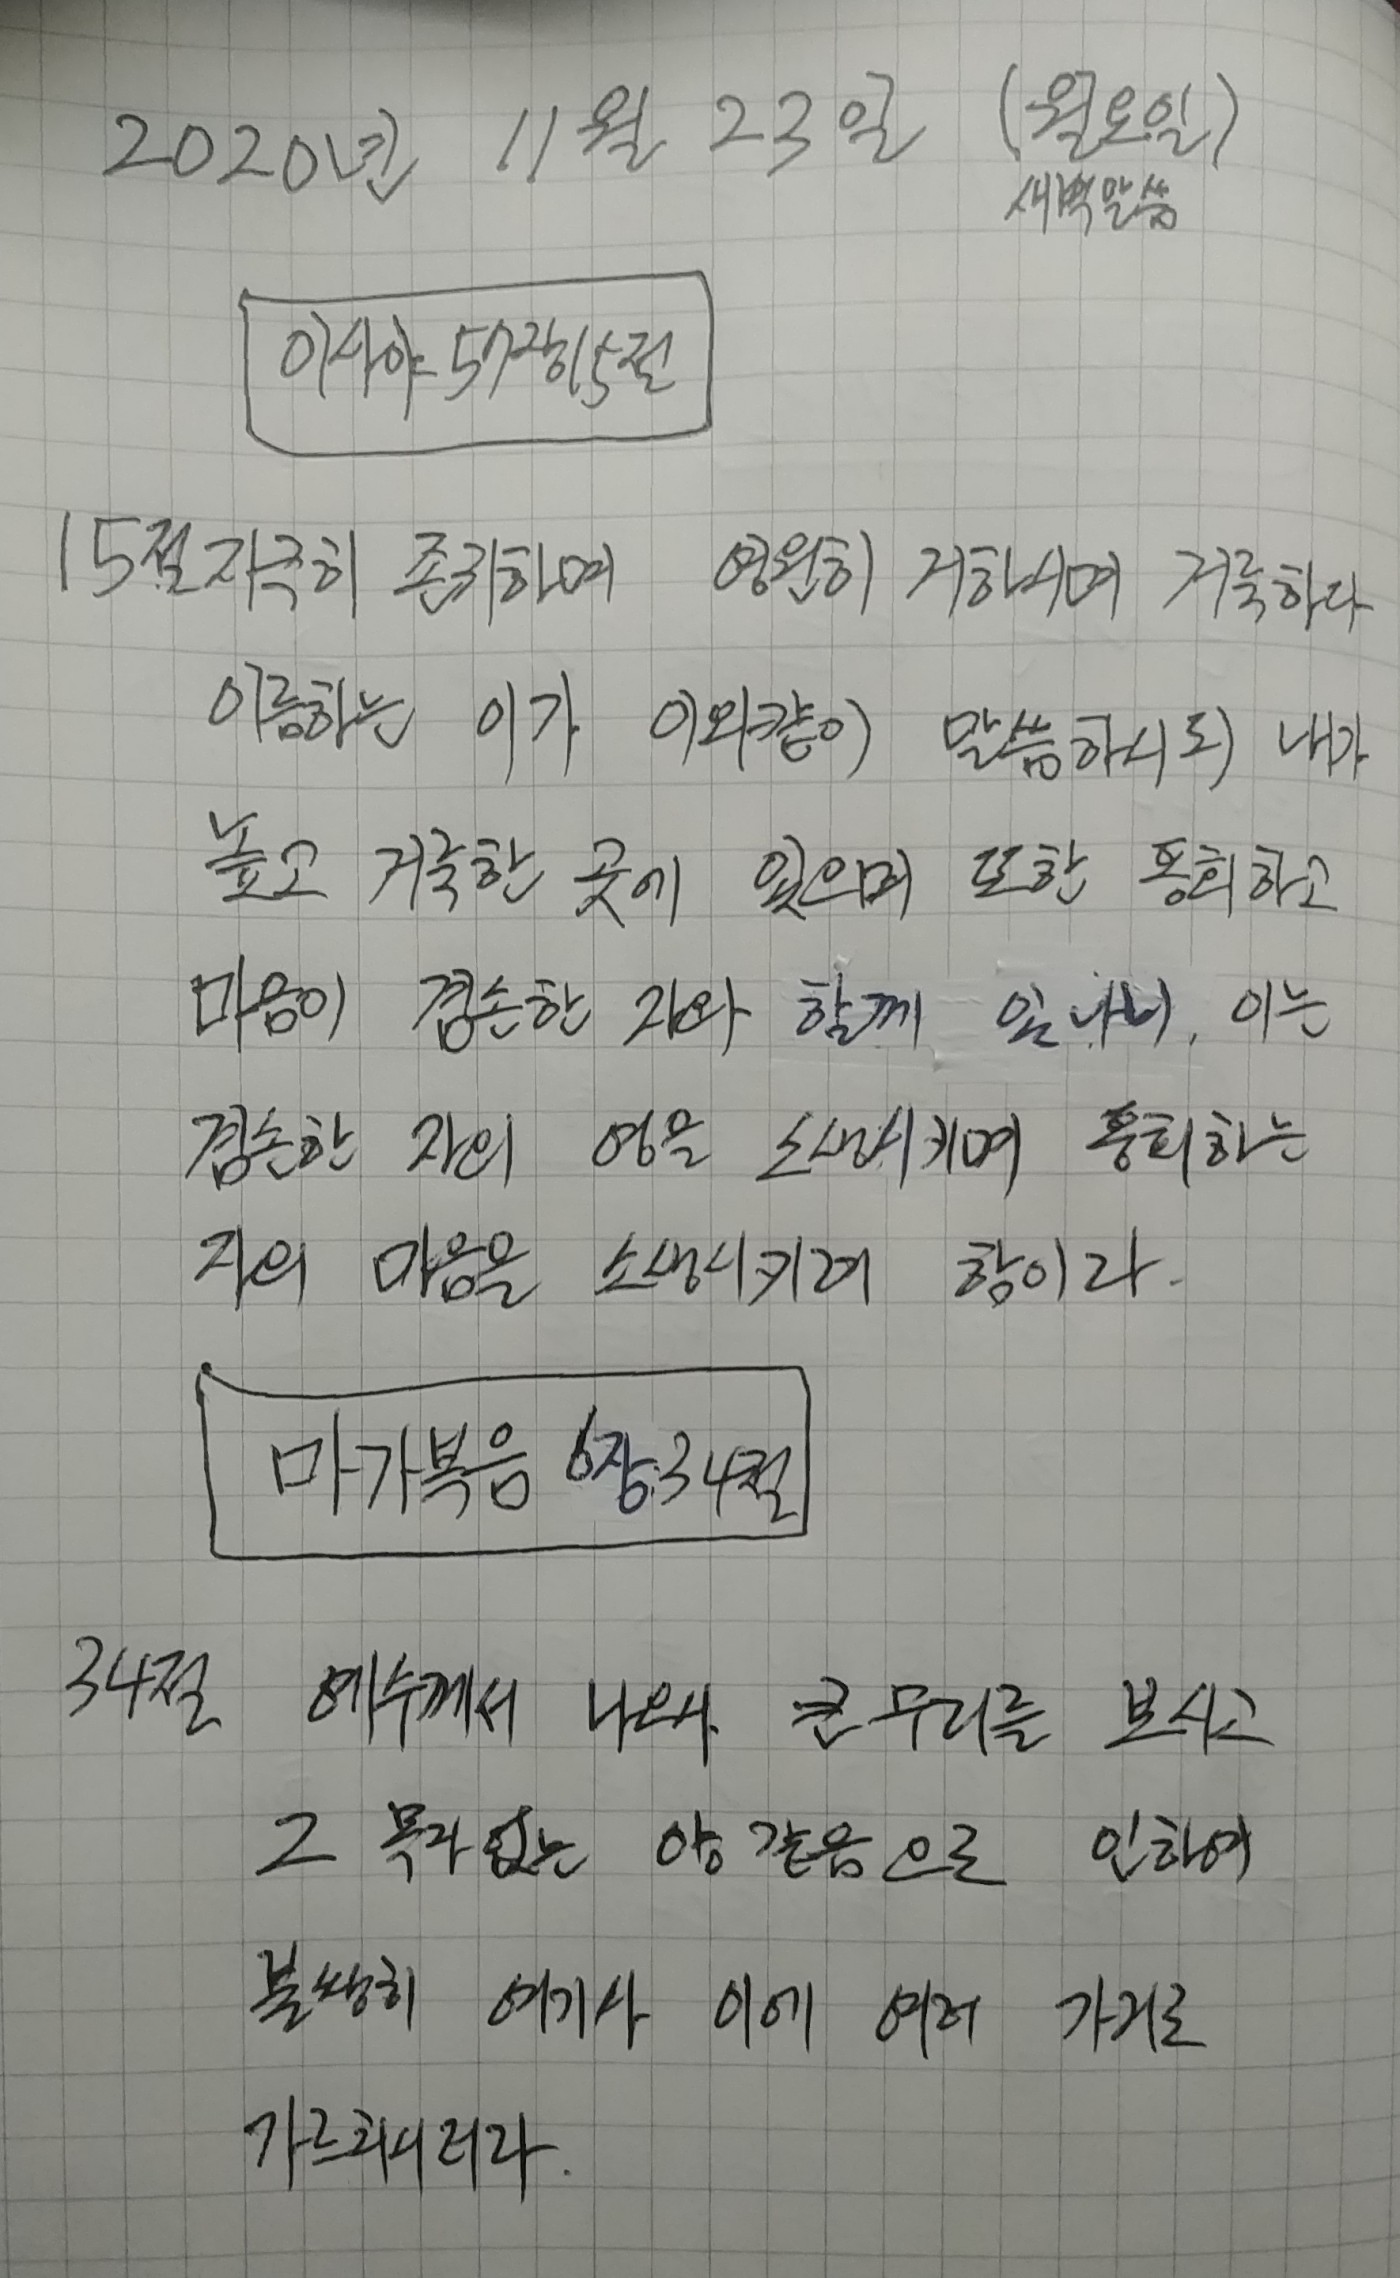 2020년 11월 23일 (월요일)
새벽말씀
이사야 57장15절
15절 지극히 존귀하며 영원히 거하시며 거룩하다
이름하는 이가 이와같이 말씀하시되 내가
높고 거룩한 곳에 있으며 또한 통회하고
마음이 겸손한 자와 함께 있나니, 이는
겸손한 자의 영을 소생시키며 통회하는
자의 마음을 소생시키려 함이라.
마가복음 6장 34절
34절 예수께서 나오사 큰 무리를 보시고
그 목자 없는 양 같음으로 인하여
불쌍히 여기사 이에 여러 가지로
가르치시더라.